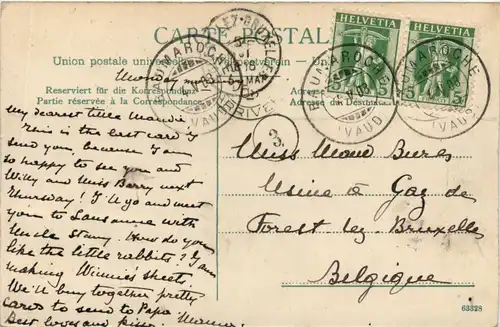 CARTE POSTALE
Union postale universelle
Reservirt für die Korrespondenz
Partie réservée à la Correspondance
Adresse
HELVETIA
HELVETIA
5
5
BAUMAROCHE
(VAUD)
BAUMAROCHE
(VAUD)
BAUMAROCHE
(VAUD)
Monday
My dearest little Maudie
This is the last card I
send you, because I am
so happy to see you and
Willy and Miss Barry next
Thursday! I'll go and meet
you to Lausanne with
Uncle Stany. How do you
like the little rabbits? I am
making Winnie's sheets.
We'll buy together pretty
cards to send to Papa.
Best love and kisses
3
Miss Maud
Usine à Gaz de
Forest lez Bruxelles
Belgique
63328